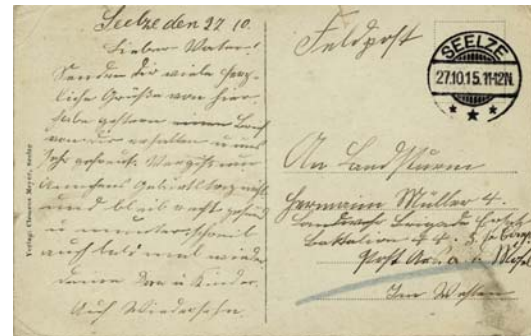 Seelze den 27 10.
Lieber Vater!
Senden dir viele herz-
liche Grüße von hier
habe gestern einen Brief
von dir erhalten u uns
sehr gefreut. Vergiß nur
Annchens Geburtstag nicht
und bleib recht gesund
u munter schreib
auch bald mal wieder
deine Frau u Kinder.
Auf Wiedersehn.
Verlag: Clemens Meyer, Seelze
Feldpost
SEELZE
27.10.15. 11-12N.
An Landsturm
Hermann Müller 4.
Landwehr Brigade Ersatz
Battalion 44.
Post
Im Westen